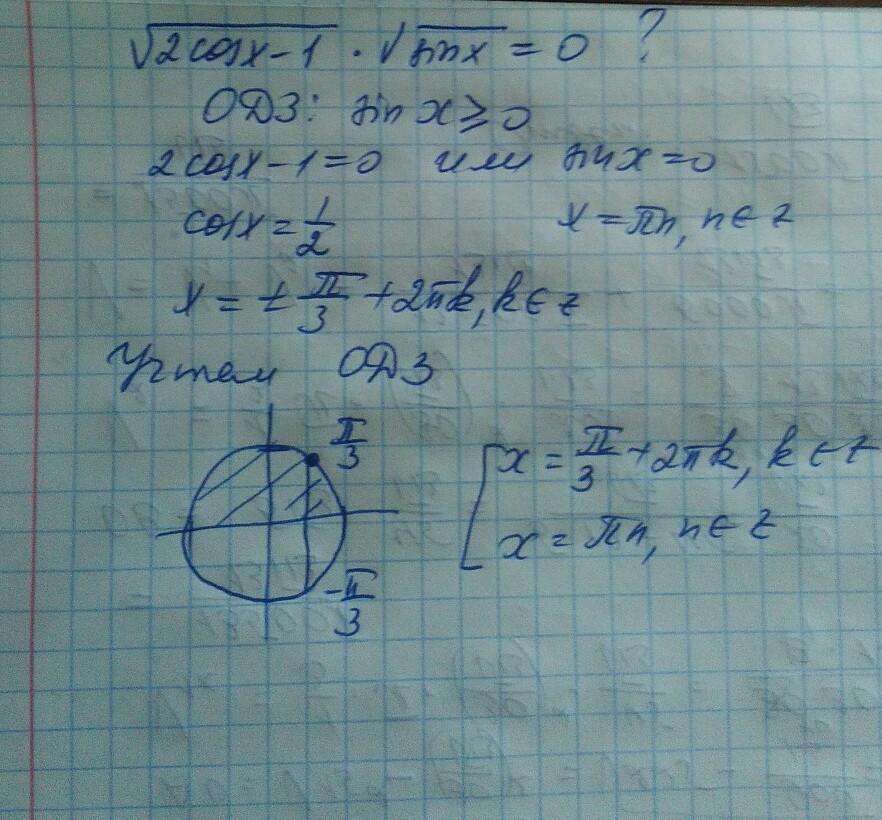 √2cosx-1 · √sinx = 0 ?
ОДЗ: sin x ≥ 0
2cosx-1=0 или sinx=0
cosx = 1/2 x = πn, n ∈ z
x = ± π/3 + 2πk, k ∈ z
Учтем ОДЗ
π/3
[ x = π/3 + 2πk, k ∈ z
x = πn, n ∈ z
-π/3